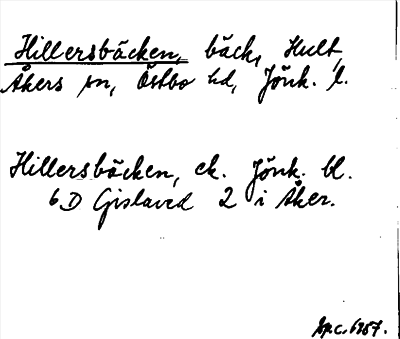 Hillersbäcken, bäck, Hult,
Åkers sn, Östbo hd, Jönk. l.
Hillersbäcken, ek. Jönk. bl.
6D Gislaved 2 i Åker.
1967.